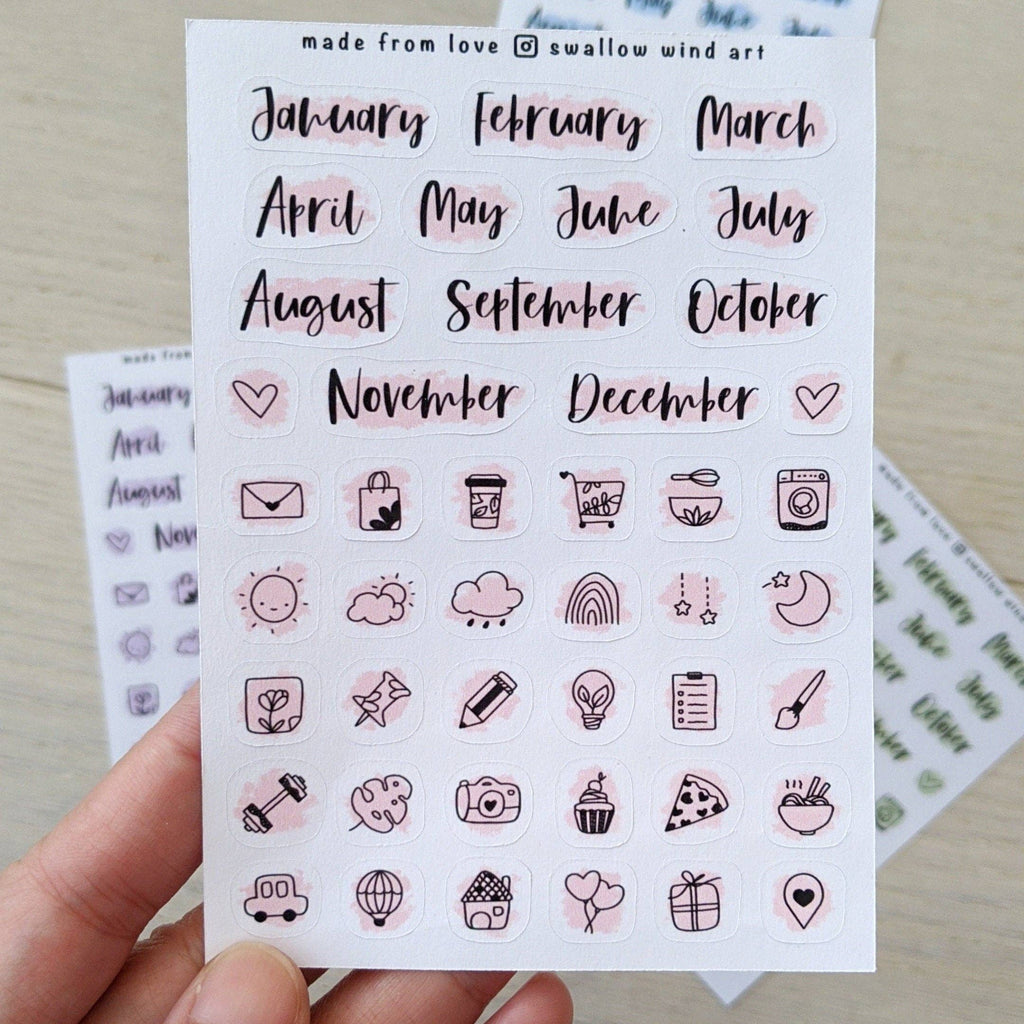 made from love swallow wind art
January February March
April May June July
August September October
November December
made from
January
April
August
Nov
made from love swallow wind
February
October